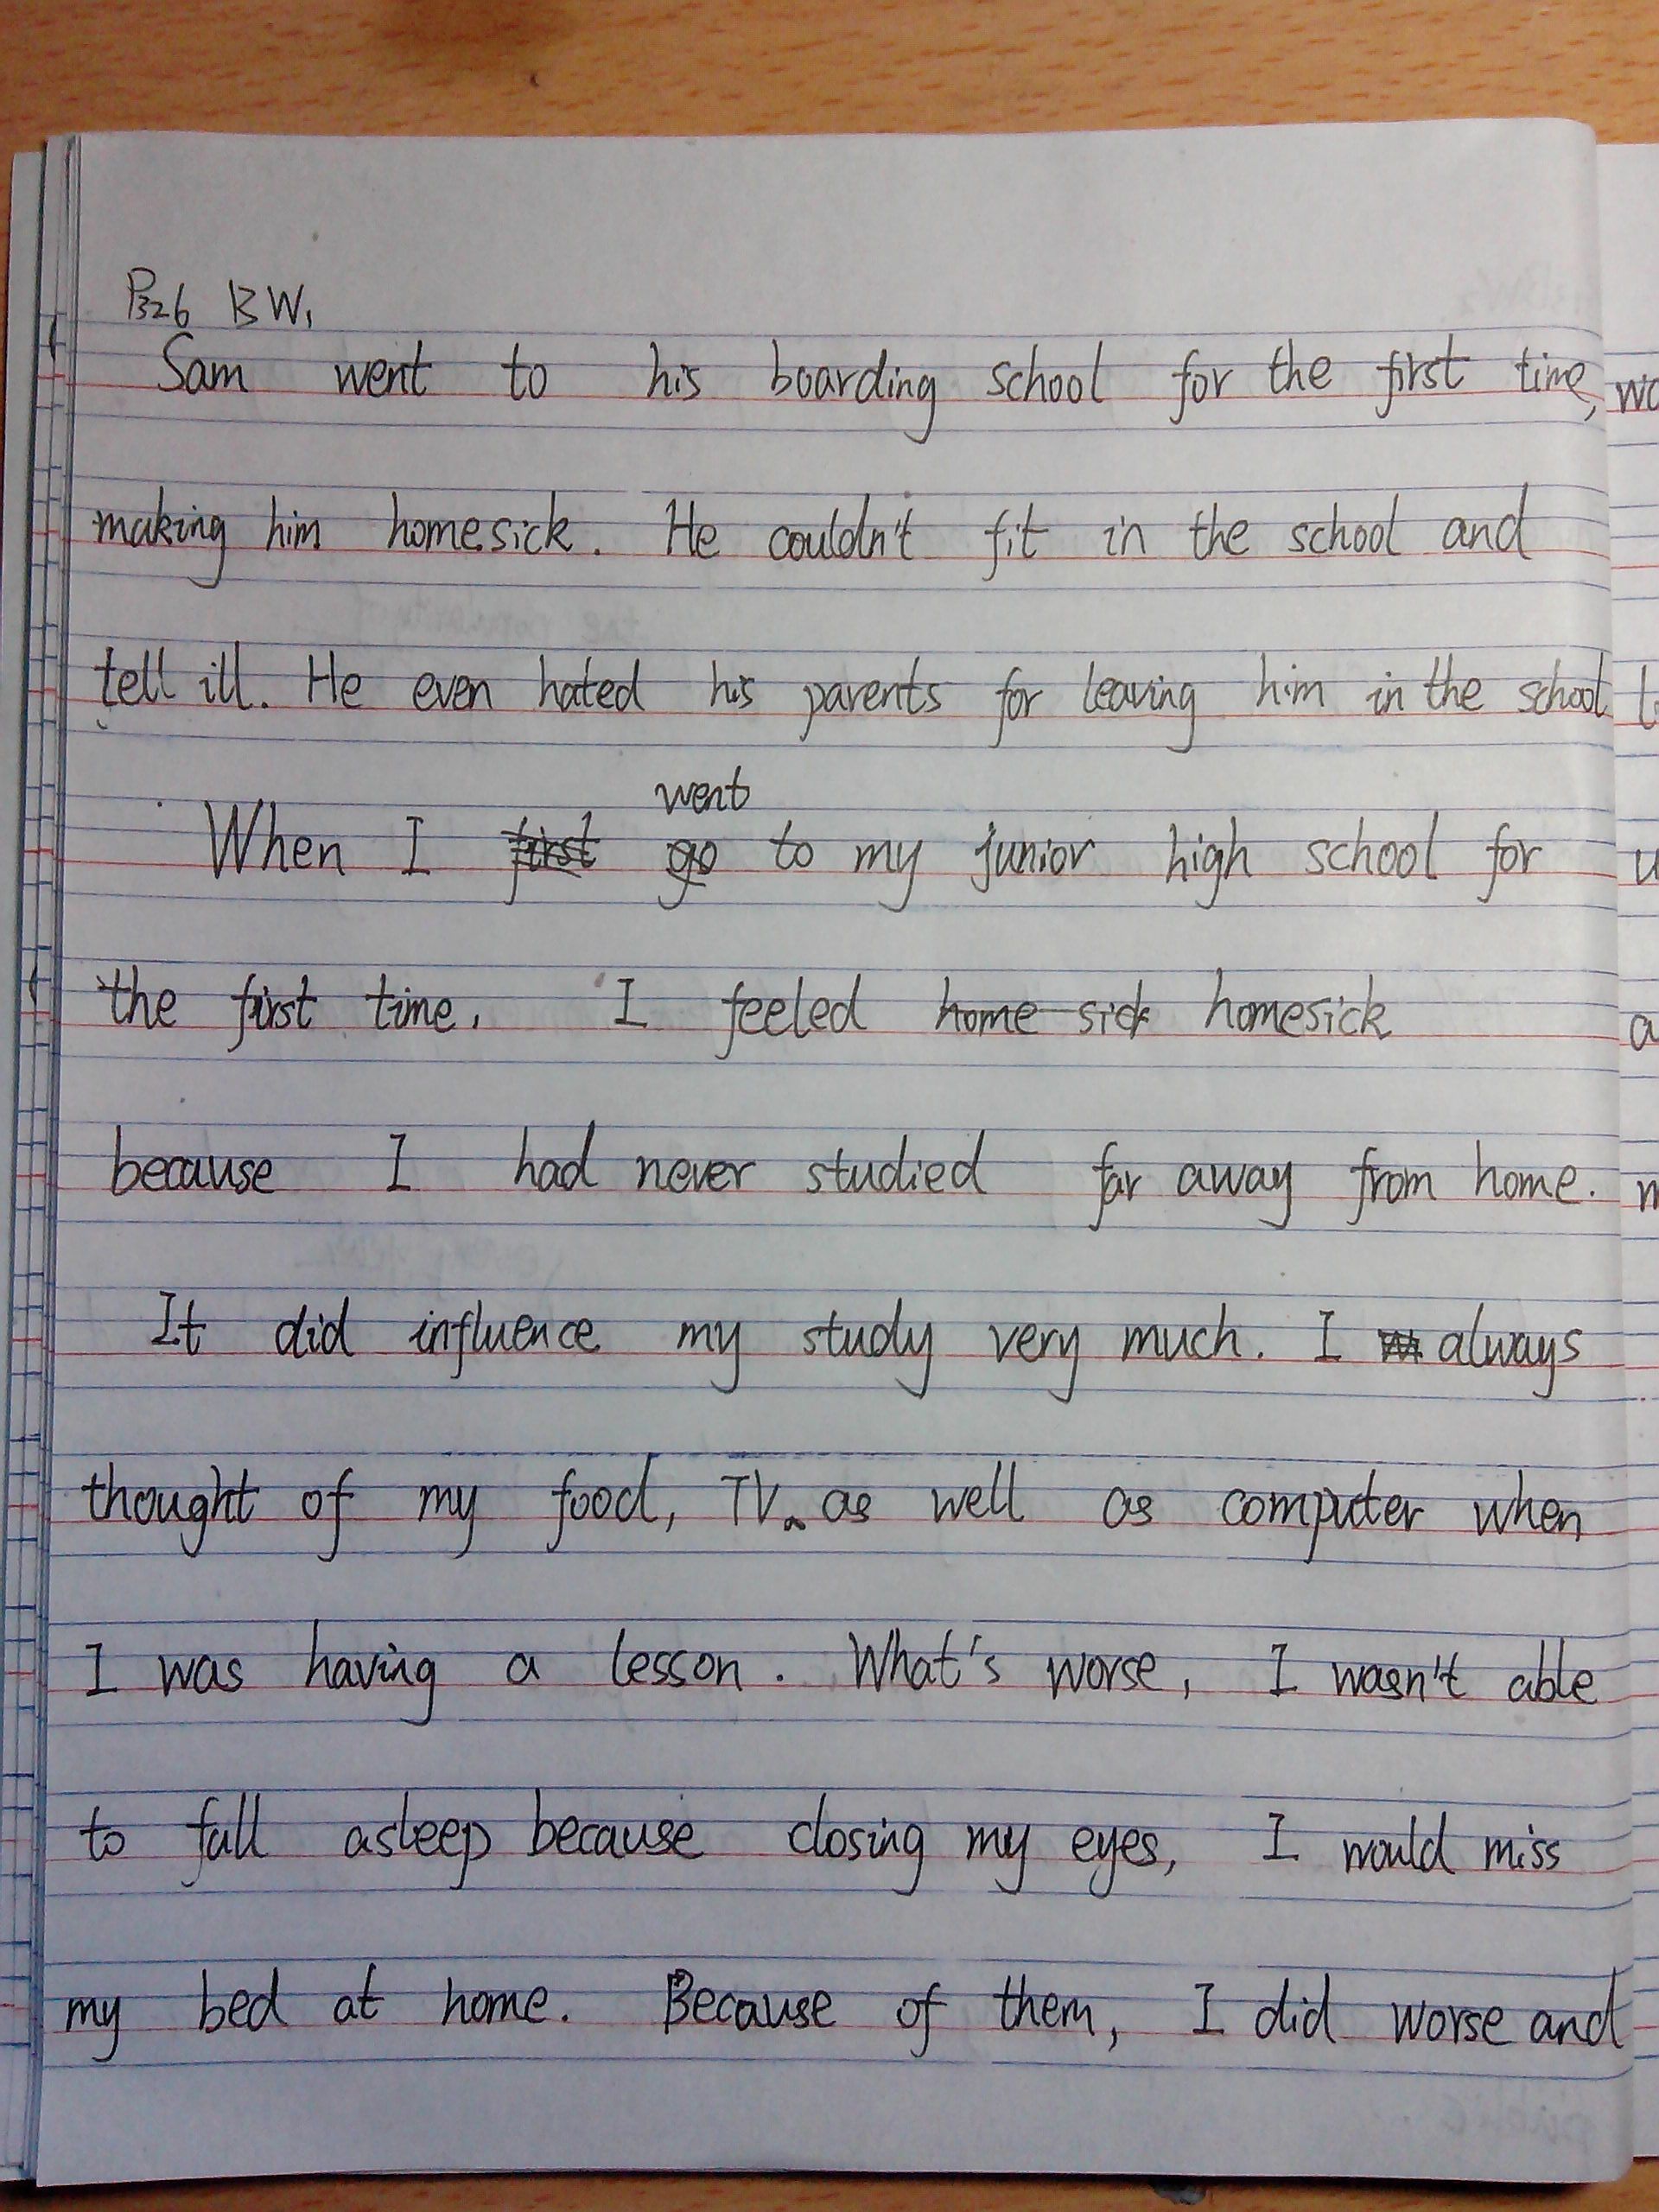 P326 BW1
Sam went to his boarding school for the first time,
making him homesick. He couldn't fit in the school and
tell ill. He even hated his parents for leaving him in the school
went
When I first go to my junior high school for
the first time. I feeled home sick homesick
because I had never studied far away from home.
It did influence my study very much. I always
thought of my food, TV. as well as computer when
I was having a lesson. What's worse, I wasn't able
to fall asleep because closing my eyes, I would miss
my bed at home. Because of them, I did worse and